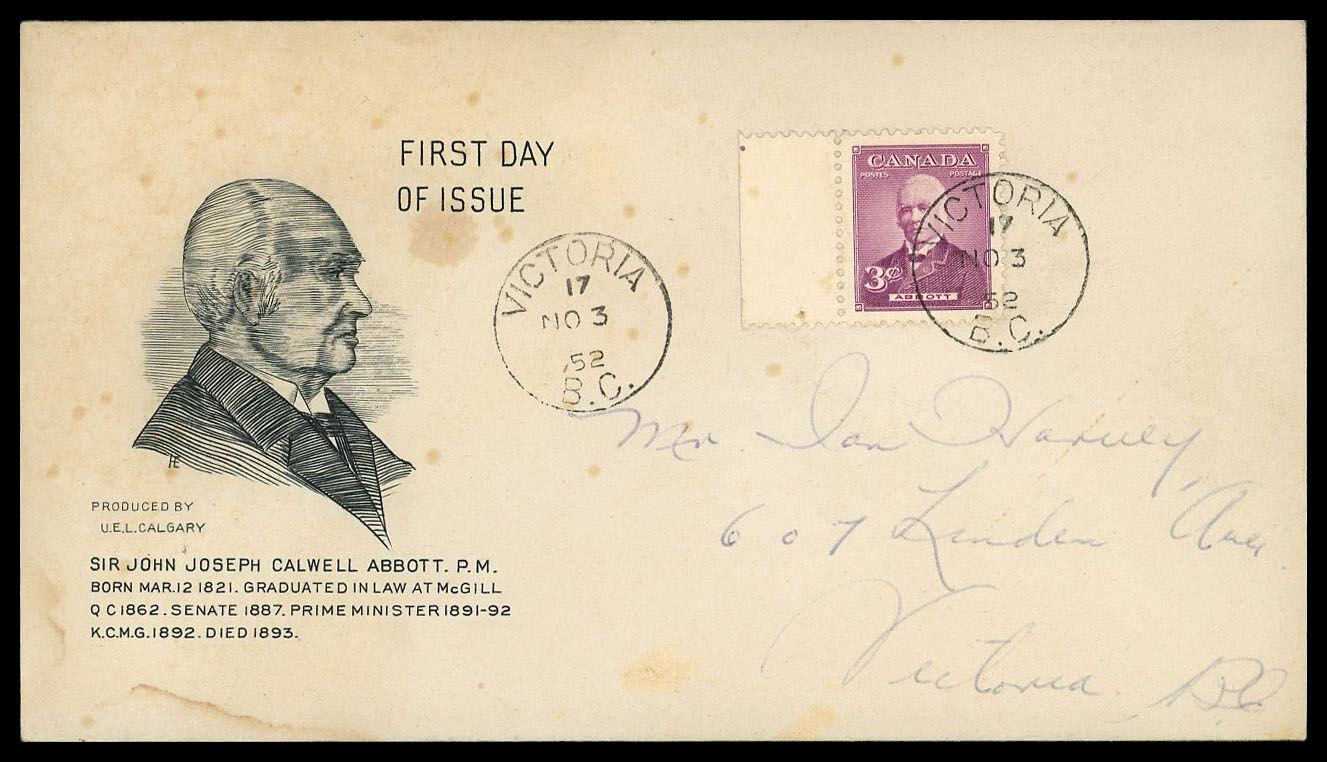 FIRST DAY
OF ISSUE
CANADA
POSTES POSTAGE
3¢
ABBOTT
VICTORIA
17
NO 3
52
B.C.
VICTORIA
17
NO 3
52
B.C.
Mr Ian Harvey,
607 Linden Ave
Victoria BC
HE
PRODUCED BY
U.E.L. CALGARY
SIR JOHN JOSEPH CALWELL ABBOTT. P.M.
BORN MAR.12 1821. GRADUATED IN LAW AT McGILL
Q C 1862. SENATE 1887. PRIME MINISTER 1891-92
K.C.M.G. 1892. DIED 1893.